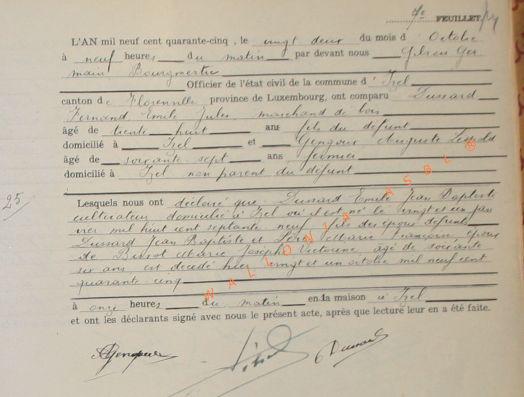 7e FEUILLET
L'AN mil neuf cent quarante-cinq, le vingt deux du mois d'Octobre
à neuf heures du matin par devant nous Ger
main Bourgnertie
Officier de l'état civil de la commune d'Izel
canton de Florenville province de Luxembourg, ont comparu Dussard
Fernand Emile Jules marchand de bois
âgé de trente huit ans fils du défunt
domicilié à Izel et Gengoux Auguste Léopold
âgé de soixante sept ans fermier
domicilié à Izel non parent du défunt
25
Lesquels nous ont déclaré que Dussard Emile Jean Baptiste
cultivateur domicilié à Izel où il est né le vingt et un jan
vier mil huit cent septante neuf fils des époux défunts
Dussard Jean Baptiste et Marie Françoise, époux
de Marie Joseph Victorine âgé de soixante
six ans est décédé hier vingt et un octobre mil neuf cent
quarante cinq
à onze heures du matin en la maison à Izel
et ont les déclarants signé avec nous le présent acte, après que lecture leur en a été faite.
WALLONIA ASBL ©
AGengoux
E Dussard